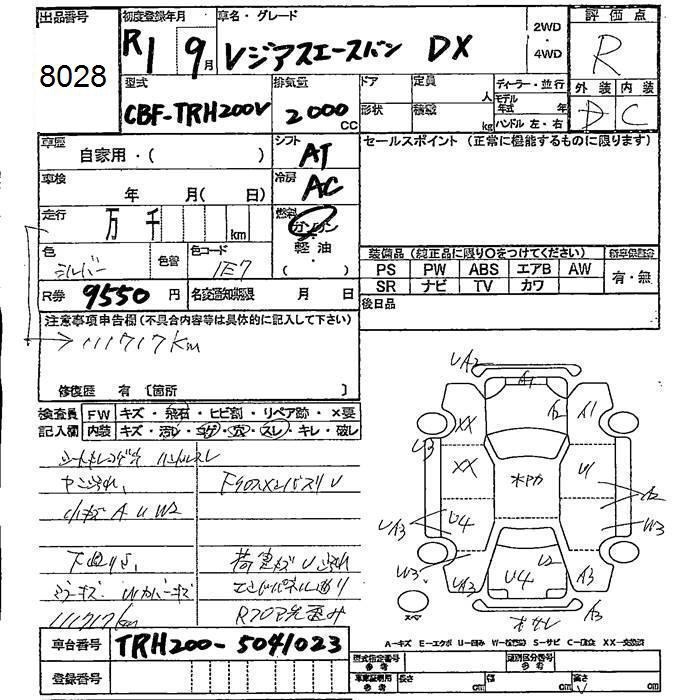 出品番号 初度登録年月 車名・グレード 2WD・4WD 評価点
8028 R1 9月 レジアスエースバン DX R
型式 排気量 ドア 定員 人 ディーラー・並行 外装 内装
CBF-TRH200V 2000cc 形状 積載 kg モデル年式 年 D C
ハンドル 左・右
車歴 自家用・( ) シフト AT セールスポイント (正常に機能するものに限ります)
車検 年 月( 日) 冷房 AC
走行 万 千 km 燃料 ガソリン
軽油・( )
色 シルバー 色替 色コード 1E7 装備品 (純正品に限り○をつけてください) 新車保証書
PS PW ABS エアB AW 有・無
SR ナビ TV カワ
R券 9550円 名変通知期限 月 日 後日品
注意事項申告欄 (不具合内容等は具体的に記入して下さい)
→111717km
修復歴 有 〔箇所 〕
検査員 FW キズ・飛石・ヒビ割・リペア跡・×要
記入欄 内装 キズ・汚レ・コゲ・穴・スレ・キレ・破レ
ハンドルスレ
小キズ A U W2
下廻りサビ
荷室キズU
ミラーキズ
111717km
UA2
A1
A2 A1
XX
U3
XX ホヤカ U1
A2
UA3 U4 W3
W3 U2
UA3 U4 A3
スペア A3
A-キズ E-エクボ U-凹み W-板金跡 S-サビ C-腐食 XX-交換済
車台番号 TRH200-5041023
登録番号
型式指定番号 参考 類別区分番号 参考
車庫証明用 参考 長さ cm 幅 cm 高さ cm